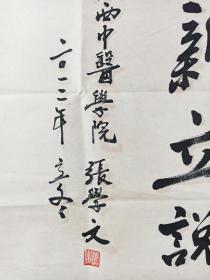 新立說
西中醫學院 張學文
二〇一二年 立冬